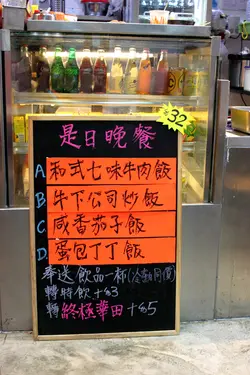 是日晚餐
32
A 和式七味牛肉飯
B 牛下公司炒飯
C 咸番茄子飯
D. 蛋包丁丁飯
奉送飲品一杯(冷熱同價)
轉特飲+$3
轉終極華田+$5